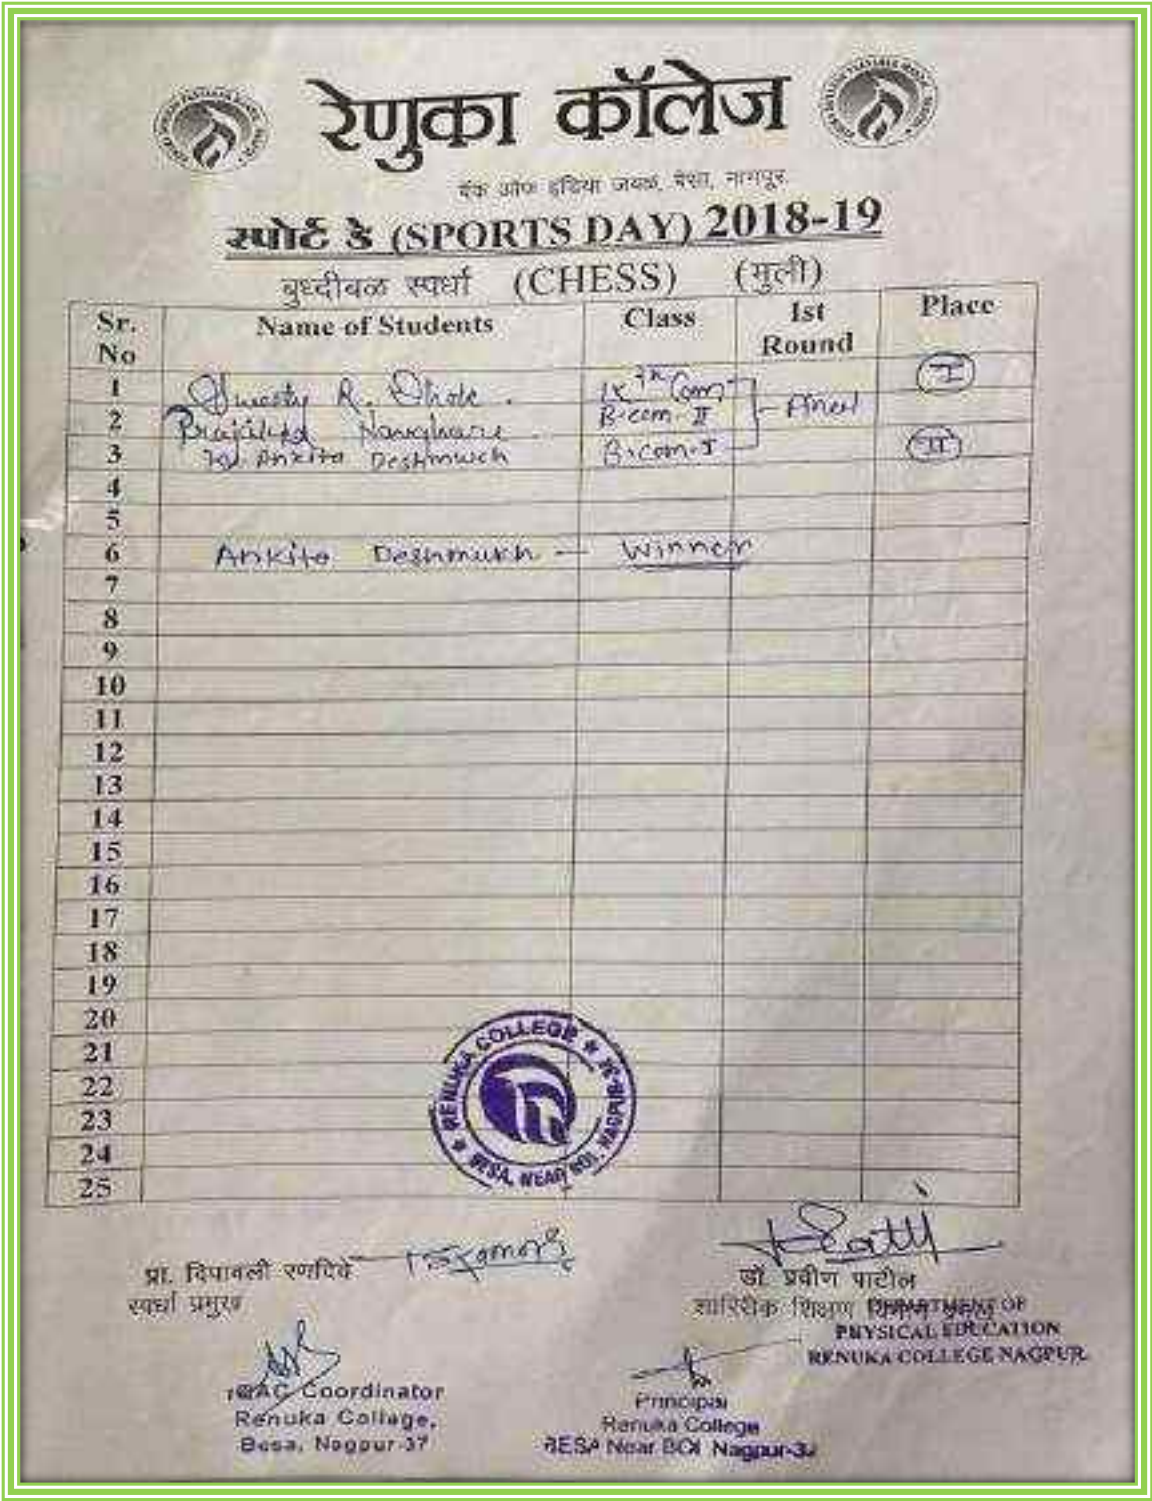 रेणुका कॉलेज
बँक ऑफ इंडिया जवळ, बेसा, नागपूर
स्पोर्ट डे (SPORTS DAY) 2018-19
बुध्दीबळ स्पर्धा (CHESS) (मुली)
Sr. No Name of Students Class Ist Round Place
1 R. Dhole. Com I
2 Navghare B.com II Final
3 Ankita Deshmukh B.com-I II
4
5
6 Ankita Deshmukh - Winner
7
8
9
10
11
12
13
14
15
16
17
18
19
20
21
22
23
24
25
RENUKA COLLEGE * BESA, NEAR BOI, NAGPUR-37 *
प्रा. दिपावली रणदिवे
स्पर्धा प्रमुख
डॉ. प्रवीण पाटील
शारिरीक शिक्षण विभाग
DEPARTMENT OF
PHYSICAL EDUCATION
RENUKA COLLEGE NAGPUR
IQAC Coordinator
Renuka College,
Besa, Nagpur-37
Principal
Renuka College
BESA Near BOI Nagpur-37